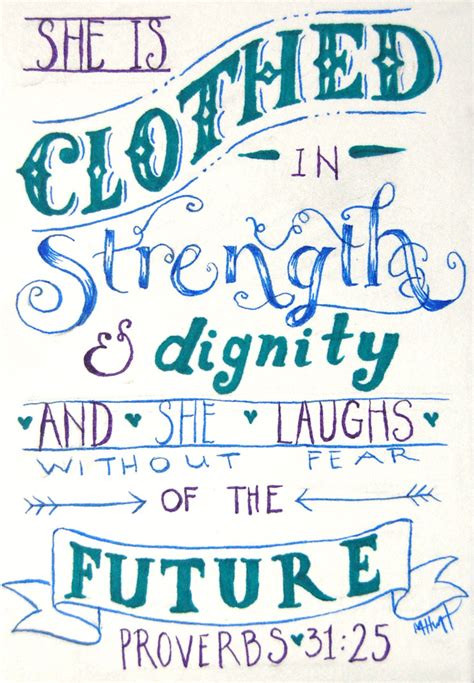 SHE IS
CLOTHED
IN
Strength
& dignity
AND SHE LAUGHS
WITHOUT FEAR
OF THE
FUTURE
PROVERBS 31:25